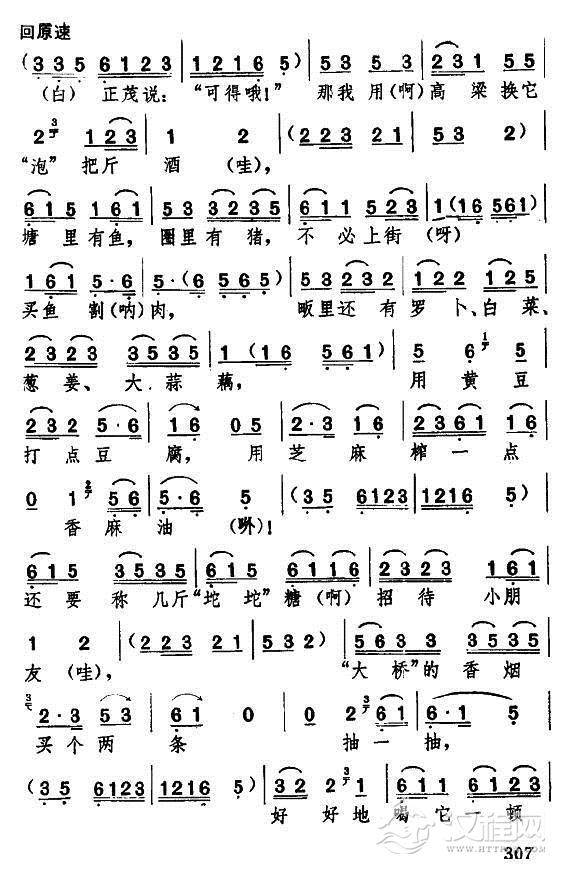 回原速
(3 3 5 6 1 2 3 | 1 2 1 6 5) | 5 3 5 3 5 | (2 3 1) 5 5 |
(白) 正茂说：“可得哦！” 那我用(啊)高粱换它
2 1 2 3 | 1 2 | (2 2 3 2 1 | 5 3 2) |
“泡”把斤 酒(哇)，
6 1 5 1 6 1 | 5 3 3 2 3 5 | 6 1 1 5 2 3 | 1 (1 6 5 6 1) |
塘里有鱼，圈里有猪，不必上街(呀)
1 6 1 5·6 | 5·(6 5 6 5) | 5 3 2 3 2 | 1 2 2 1 2 2 5 |
买鱼割(呐)肉， 畈里还有罗卜、白菜、
2 3 2 3 3 5 3 5 | 1 (1 6 5 6 1) | 5 6 5 |
葱姜、大蒜藕， 用黄豆
2 3 2 5·6 | 1 6 0 5 | 2·3 1 6 | 2 3 6 1 1 6 |
打点豆腐，用芝麻榨一点
0 1 5 6 | 5·6 5 | (3 5 6 1 2 3 | 1 2 1 6 5) |
香麻油(咧)！
6 1 5 3 5 3 5 | 6 1 5 6 1 1 6 | 2 3 2 3 1 6 |
还要称几斤“坨坨”糖(啊)招待小朋
1 2 | (2 2 3 2 1 | 5 3 2) | 5 6 3 3 5 3 5 |
友(哇)， “大桥”的香烟
2·3 5 3 | 6 1 0 | 0 2 6 1 | 6·1 5 |
买个两条 抽一抽，
(3 5 6 1 2 3 | 1 2 1 6 5) | 3 2 2 1 | 6 1 1 6 1 2 3 |
好好地喝它一顿
汉程网
WWW.HTTPCN.COM
307